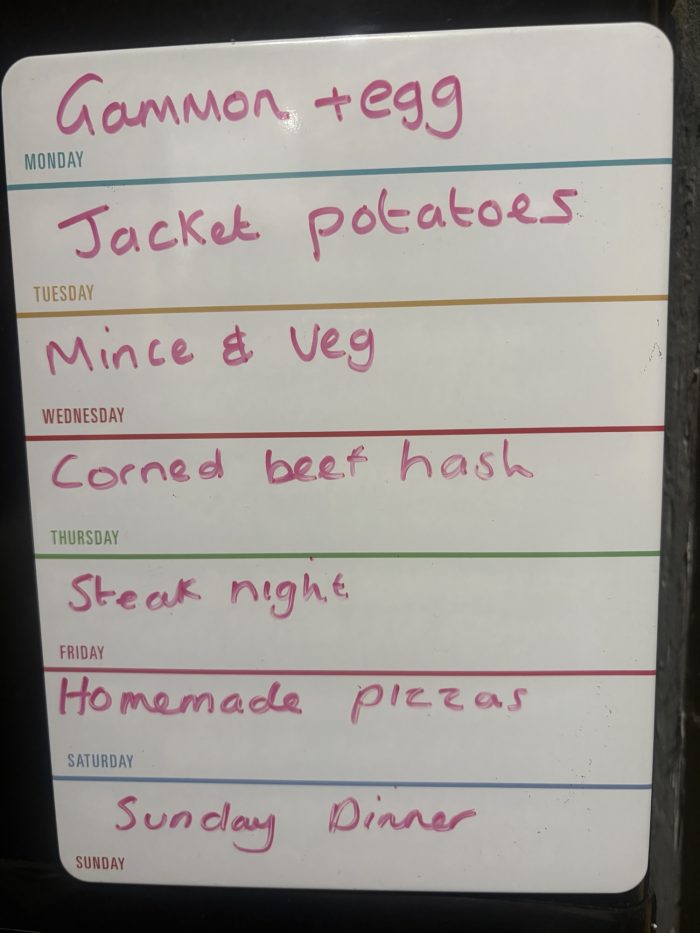 Gammon + egg
MONDAY
Jacket potatoes
TUESDAY
Mince & Veg
WEDNESDAY
Corned beef hash
THURSDAY
Steak night
FRIDAY
Homemade pizzas
SATURDAY
Sunday Dinner
SUNDAY